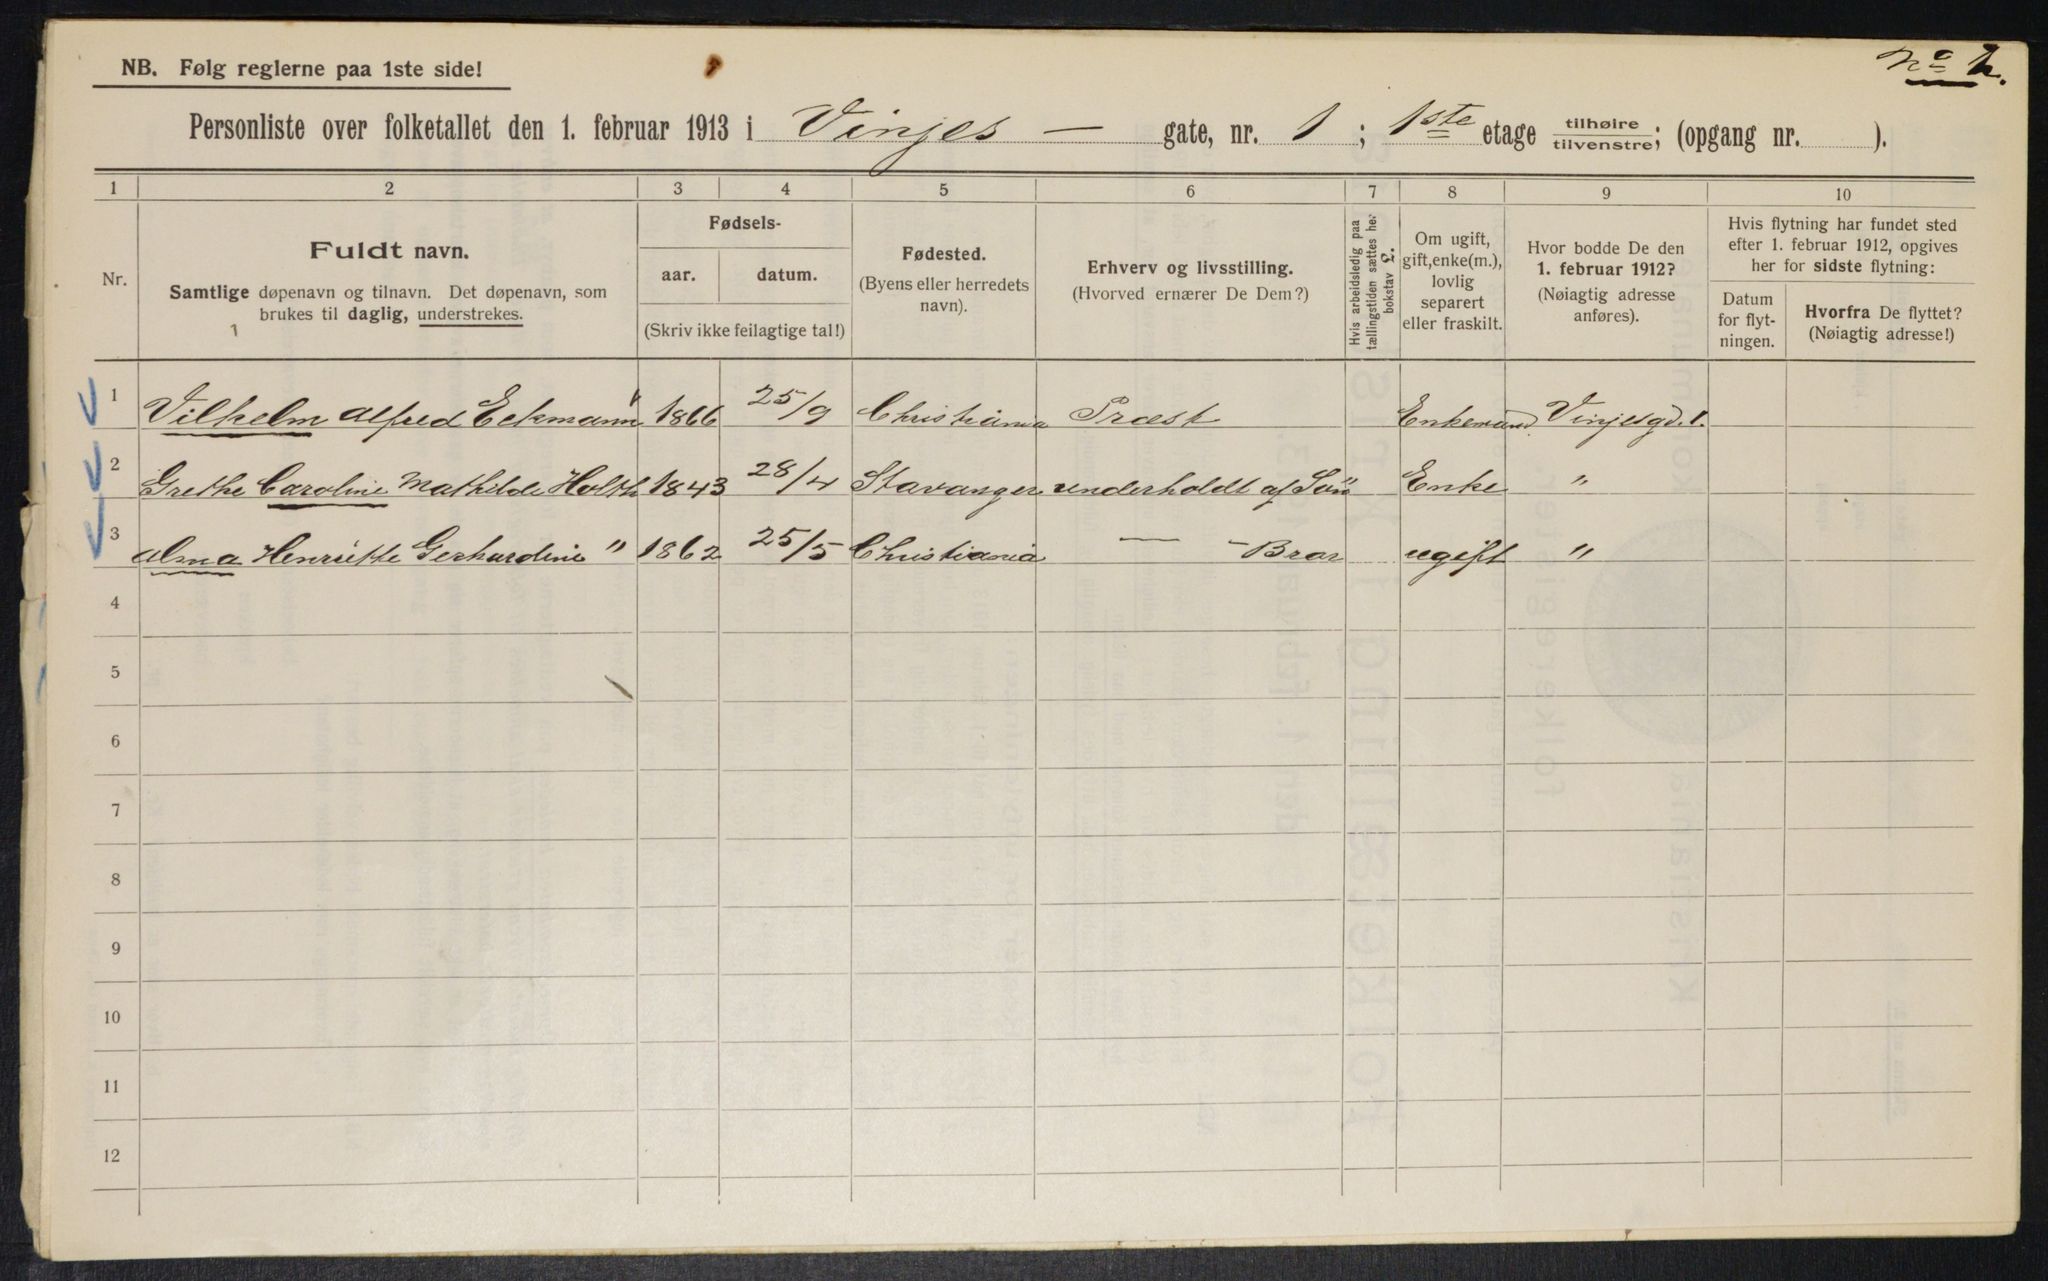 No 2.
NB. Følg reglerne paa 1ste side!
Personliste over folketallet den 1. februar 1913 i Vinjes — gate, nr. 1 ; 1ste etage tilhøire/tilvenstre; (opgang nr. ).
1 2 3 4 5 6 7 8 9 10
Nr.
Fuldt navn.
Samtlige døpenavn og tilnavn. Det døpenavn, som
brukes til daglig, understrekes.
Fødsels-
aar. datum.
(Skriv ikke feilagtige tal!)
Fødested.
(Byens eller herredets
navn).
Erhverv og livsstilling.
(Hvorved ernærer De Dem?)
Hvis arbeidsledig paa
tællingstiden sættes her
bokstav L.
Om ugift,
gift, enke(m.),
lovlig
separert
eller fraskilt.
Hvor bodde De den
1. februar 1912?
(Nøiagtig adresse
anføres).
Hvis flytning har fundet sted
efter 1. februar 1912, opgives
her for sidste flytning:
Datum
for flyt-
ningen.
Hvorfra De flyttet?
(Nøiagtig adresse!)
1 Vilhelm Alfred Eckmann 1866 25/9 Christiania Præst Enkemand Vinjesgd. 1.
2 Grethe Caroline Mathilde Holth 1843 28/4 Stavanger underholdt af Søn Enke "
3 Alma Henriette Gerhardine " 1862 25/5 Christiania — - Bror ugift "
4
5
6
7
8
9
10
11
12